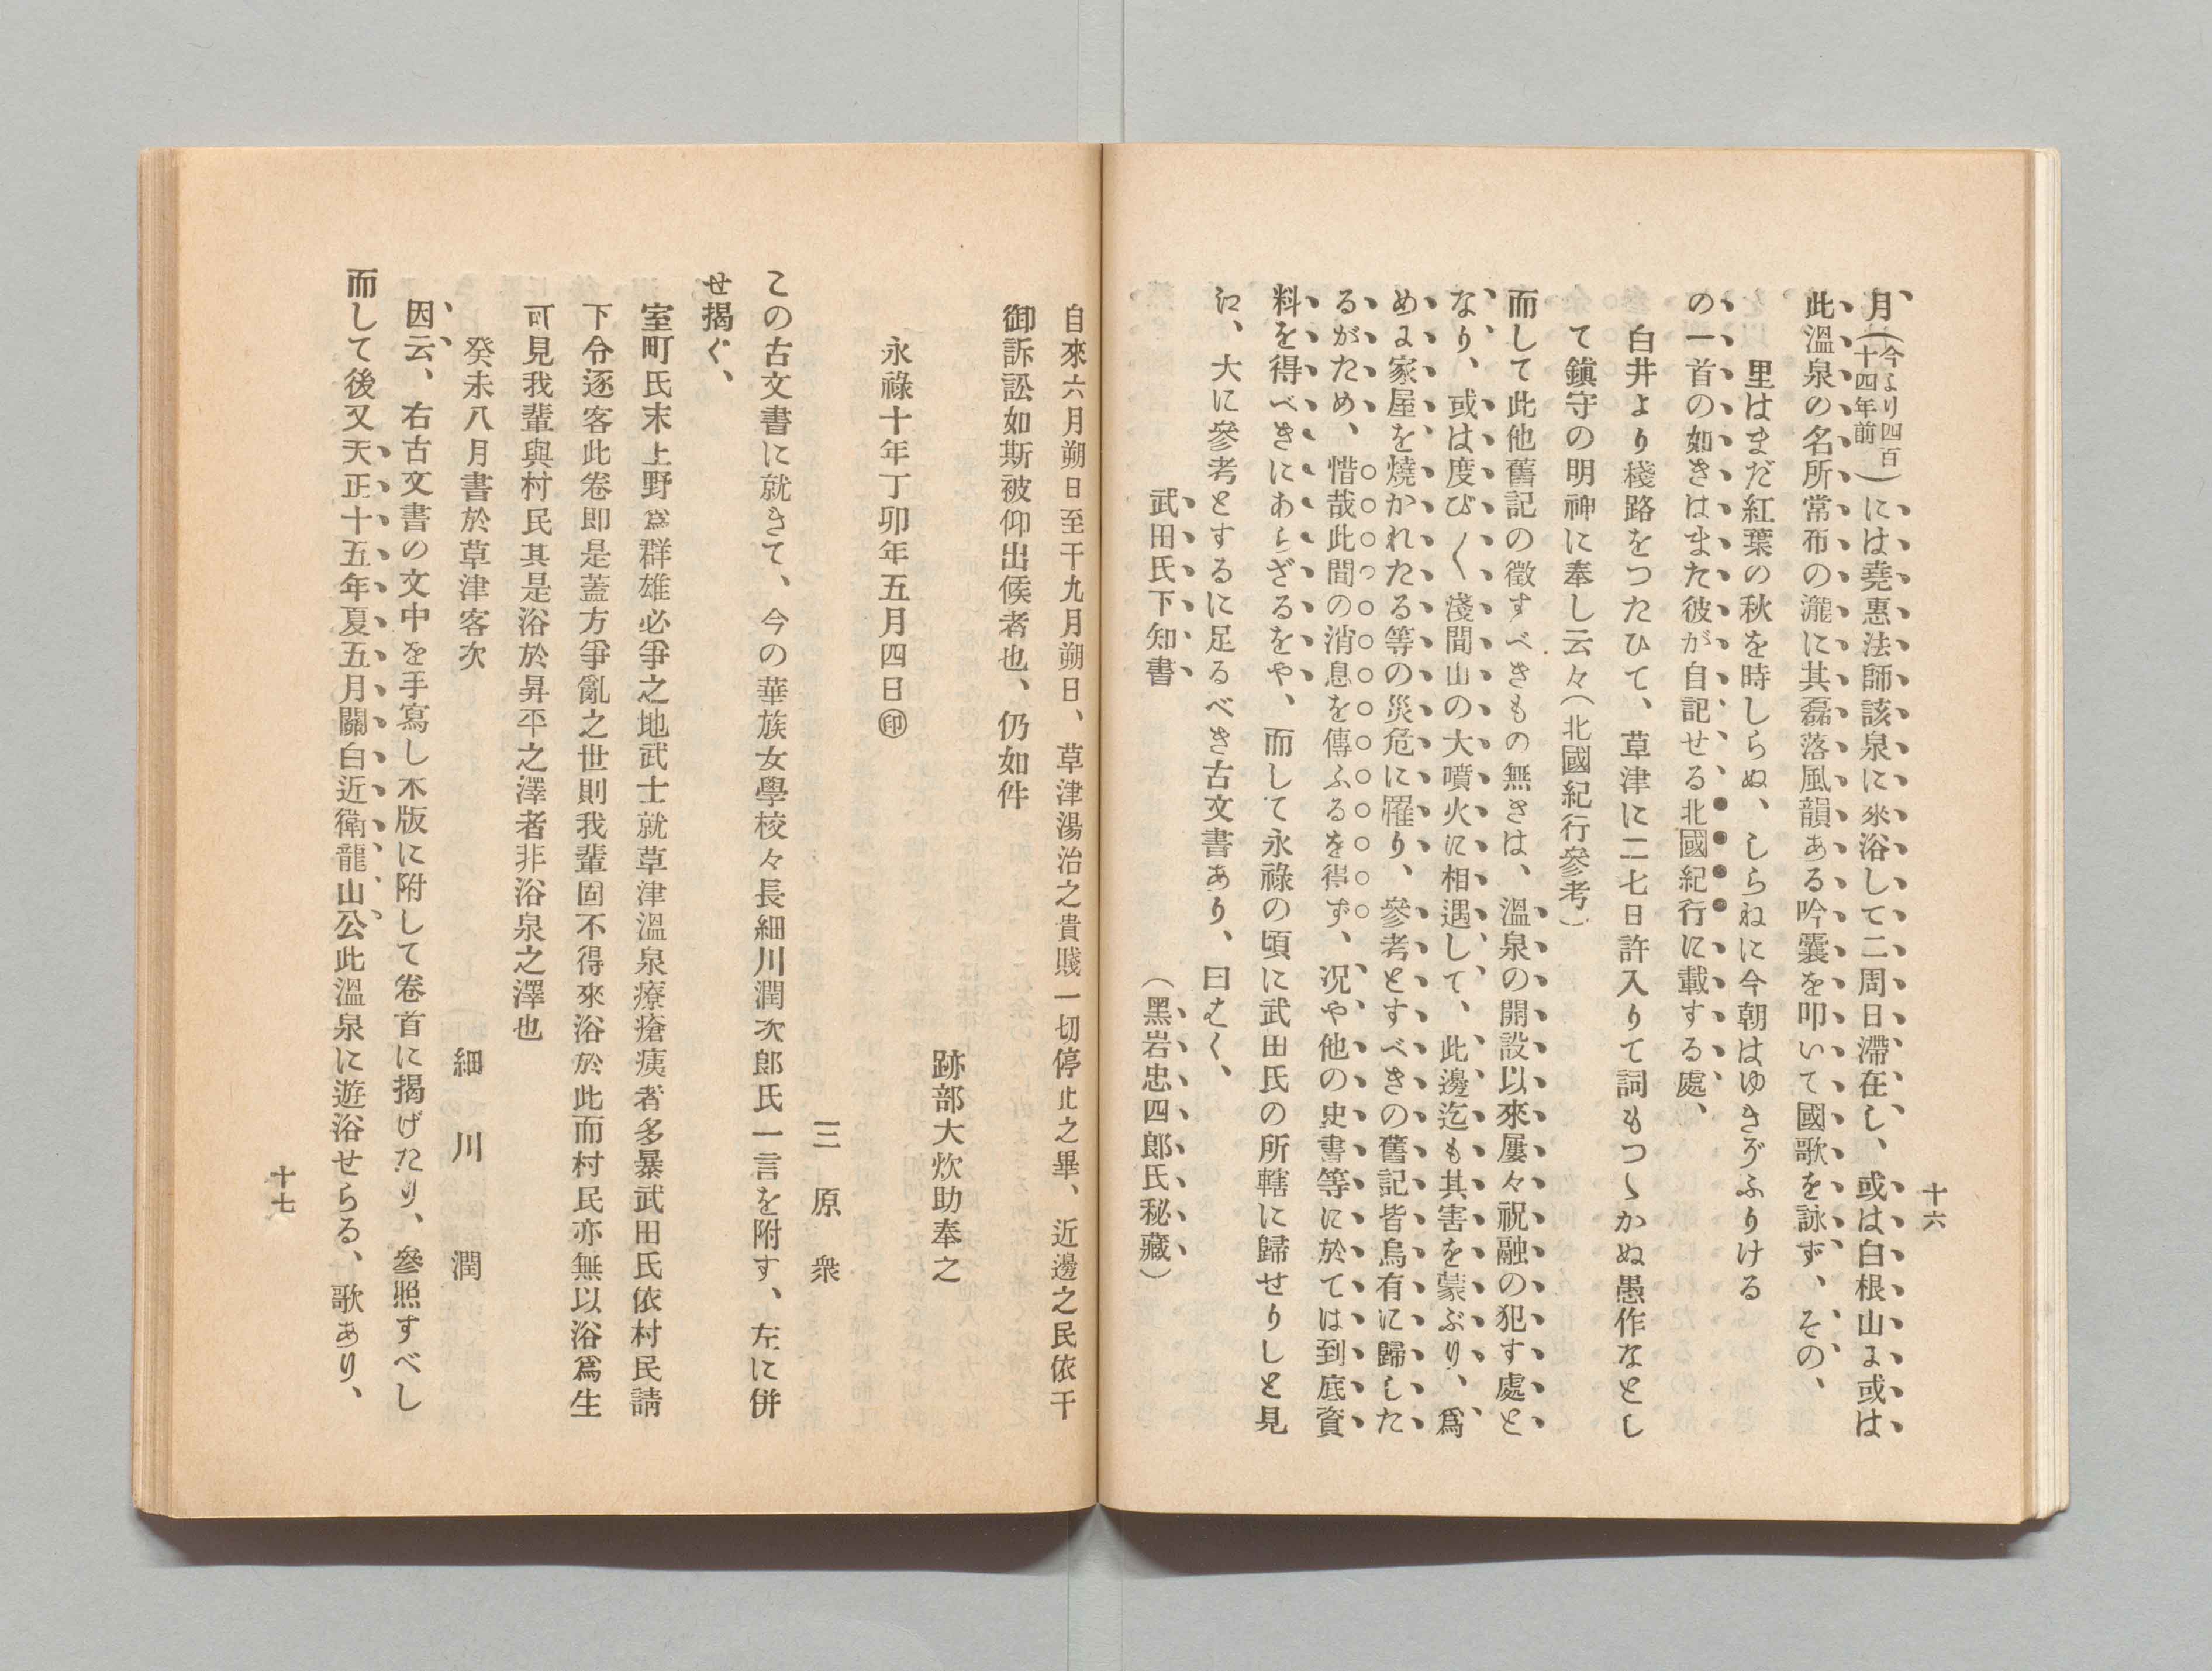 十六
月(今より四百十四年前)には堯惠法師該泉に來浴して二周日滯在し、或は白根山に或は
此溫泉の名所常布の瀧に其磊落風韻ある吟囊を叩いて國歌を詠ず、その、
里はまだ紅葉の秋を時しらぬ、しらねに今朝はゆきぞふりける
の一首の如きはまた彼が自記せる北國紀行に載する處、
白井より棧路をつたひて、草津に二七日許入りて詞もつゝかぬ愚作なとし
て鎭守の明神に奉し云々(北國紀行參考)
而して此他舊記の徵すべきもの無きは、溫泉の開設以來屢々祝融の犯す處と
なり、或は度び〱淺間山の大噴火に相遇して、此邊迄も其害を蒙ぶり、爲
めに家屋を燒かれたる等の災危に罹り、參考とすべきの舊記皆烏有に歸した
るがため、惜哉此間の消息を傳ふるを得ず、况や他の史書等に於ては到底資
料を得べきにあらざるをや、而して永祿の頃に武田氏の所轄に歸せりしと見
え、大に參考とするに足るべき古文書あり、曰はく、
武田氏下知書 (黑岩忠四郎氏秘藏)
自來六月朔日至干九月朔日、草津湯治之貴賤一切停止之畢、近邊之民依干
御訴訟如斯被仰出候者也、仍如件
跡部大炊助奉之
永祿十年丁卯年五月四日㊞
三原衆
この古文書に就きて、今の華族女學校々長細川潤次郎氏一言を附す、左に併
せ揭ぐ、
室町氏末上野爲群雄必爭之地武士就草津溫泉療瘡痍者多暴武田氏依村民請
下令逐客此卷即是蓋方爭亂之世則我輩固不得來浴於此而村民亦無以浴爲生
可見我輩與村民其是浴於昇平之澤者非浴泉之澤也
癸未八月書於草津客次 細川潤
因云、右古文書の文中を手寫し木版に附して卷首に揭げたり、參照すべし
而して後又天正十五年夏五月關白近衛龍山公此溫泉に遊浴せらる、歌あり、
十七